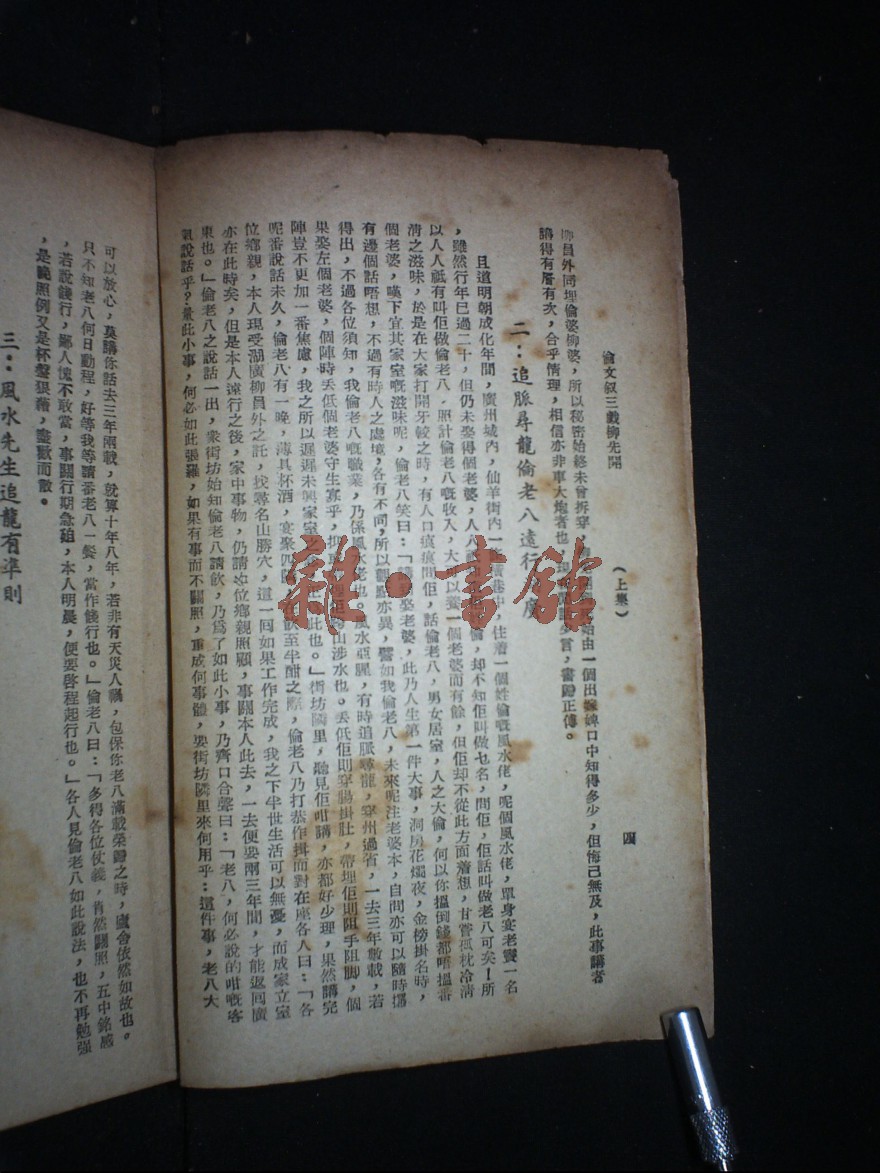 倫文叙三戲柳先開　(上集)　四
柳員外同埋倫婆柳婆，所以秘密始終未曾拆穿，由一個出嫁婢口中知得多少，但悔已無及，此事講者
講得有層有次，合乎情理，相信亦非車大炮者也，言，書歸正傳。
二：追脈尋龍倫老八遠行
且道明朝成化年間，廣州城內，仙羊街內一巷中，住着一個姓倫嘅風水佬，呢個風水佬，單身寡老賣一名
，雖然行年已過二十，但仍未娶得個老婆，人人倫，却不知佢叫做乜名，問佢，佢話叫做老八可矣！所
以人人祗有叫佢做倫老八，照計倫老八嘅收入，大可以養一個老婆而有餘，但佢却不從此方面着想，甘嘗孤枕冷清
清之滋味，於是在大家打開牙較之時，有人口痕痕問佢，話倫老八，男女居室，人之大倫，何以你搵倒錢都唔搵番
個老婆，嘆下宜其家室嘅滋味呢，倫老八笑曰：「講到娶老婆，此乃人生第一件大事，洞房花燭夜，金榜掛名時，
有邊個話唔想，不過有時人之處境，各有不同，所以觀點亦異，譬如我倫老八，未來呢注老婆本，自問亦可以隨時攞
得出，不過各位須知，我倫老八嘅職業，乃係風水佬也。風水亞腥，有時追脈尋龍，穿州過省，一去三年數載，若
果娶左個老婆，個陣時丢低個老婆守生寡乎，抑山涉水也。丢低佢則穿腸掛肚，帶埋佢則阻手阻脚，個
陣豈不更加一番焦慮，我之所以遲遲未興家室之此也。」街坊隣里，聽見佢咁講，亦都好少理，果然講完
呢番說話未久，倫老八有一晚，薄具杯酒，宴聚四飲至半酣之際，倫老八乃打恭作揖而對在座各人曰：「各
位鄉親，本人現受湖廣柳員外之託，找尋名山勝穴，這一回如果工作完成，我之下半世生活可以無憂，而成家立室
亦在此時矣，但是本人遠行之後，家中事物，仍請各位鄉親照顧，事關本人此去，一去便要兩三年間，才能返回廣
東也。」倫老八之說話一出，衆街坊始知倫老八請飲，乃爲了如此小事，乃齊口合聲曰：「老八，何必說的咁嘅客
氣說話乎？量此小事，何必如此張羅，如果有事而不關照，重成何事體，要街坊隣里來何用乎：這件事，老八大
可以放心，莫講你話去三年兩載，就算十年八年，若非有天災人禍，包保你老八滿載榮歸之時，廬舍依然如故也。
只不知老八何日動程，好等我等請番老八一餐，當作餞行也。」倫老八曰：「多得各位仗義，肯然關照，五中銘感
，若說餞行，鄙人愧不敢當，事關行期急廹，本人明晨，便要啓程起行也。」各人見倫老八如此說法，也不再勉强
，是晚照例又是杯盤狼藉，盡歡而散。
三：風水先生追龍有準則